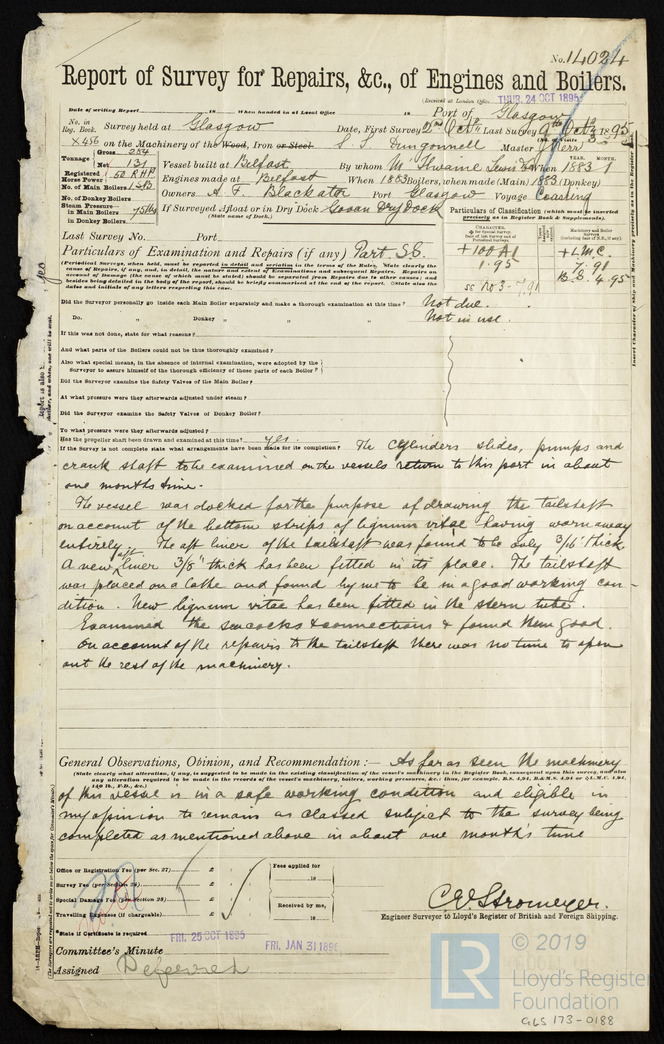 No. 14024
Report of Survey for Repairs, &c., of Engines and Boilers.
(Received at London Office THUR. 24 OCT 1895
Date of writing Report 18 When handed in at Local Office 18 Port of Glasgow
No. in Reg. Book. Survey held at Glasgow Date, First Survey 2nd Octr Last Survey 9th Octr 1895
X456 on the Machinery of the Wood, Iron or Steel S.S. Dungonnell Master Kerr
Tonnage Gross 284 Net 131
Vessel built at Belfast By whom When 1883 YEAR. MONTH.
Registered Horse Power 50 RHP
Engines made at Belfast When 1883 Boilers, when made (Main) 1883 (Donkey)
No. of Main Boilers 1SB
Owners A. F. Blackater Port Glasgow Voyage Coasting
No. of Donkey Boilers
Steam Pressure in Main Boilers 75lbs
in Donkey Boilers
If Surveyed Afloat or in Dry Dock Govan Dry Dock
(State name of Dock.)
Particulars of Classification (which must be inserted precisely as in Register Book & Supplements).
Last Survey No. Port
Particulars of Examination and Repairs (if any) Part SS.
+100A1
1.95
SS No 3-7.91
+LMC.
7.91
B.S. 4.95
(Periodical Surveys, when held, must be reported in detail and seriatim in the terms of the Rules. State clearly the
cause of Repairs, if any, and, in detail, the nature and extent of Examinations and subsequent Repairs. Repairs on
account of Damage (the cause of which must be stated) should be separated from Repairs due to other causes; and
besides being detailed in the body of the report, should be briefly summarised at the end of the report. State also the
dates and initials of any letters respecting this case.
Did the Surveyor personally go inside each Main Boiler separately and make a thorough examination at this time? Not due.
Do. " Donkey " " " Not in use.
If this was not done, state for what reasons?
And what parts of the Boilers could not be thoroughly examined?
Also what special means, in the absence of internal examination, were adopted by the
Surveyor to assure himself of the thorough efficiency of those parts of each Boiler?
Did the Surveyor examine the Safety Valves of the Main Boiler?
At what pressure were they afterwards adjusted under steam?
Did the Surveyor examine the Safety Valves of Donkey Boiler?
To what pressure were they afterwards adjusted?
Has the propeller shaft been drawn and examined at this time? yes.
If the Survey is not complete state what arrangements have been made for its completion? The cylinders slides, pumps and
crank shaft to be examined on the vessels return to this port in about
one months time.
The vessel was docked for the purpose of drawing the tailshaft
on account of the bottom strips of lignum vitae having worn away
entirely. The aft liner of the tailshaft was found to be only 3/16" thick.
A new aft liner 3/8" thick has been fitted in its place. The tailshaft
was placed on a lathe and found by me to be in a good working con-
dition. New lignum vitae has been fitted in the stern tube.
Examined the seacocks & connections & found them good.
On account of the repairs to the tailshaft there was no time to open
out the rest of the machinery.
General Observations, Opinion, and Recommendation :— As far as seen the machinery
(State clearly what alteration, if any, is suggested to be made in the existing classification of the vessel's machinery in the Register Book, consequent upon this survey, and also
any alteration required to be made in the records of the vessel's machinery, boilers, working pressures, &c.; thus, for example, B.S. 4,94, B.&M.S. 4,94 or +L.M.C. 4,94,
140 lb., F.D., &c.)
of this vessel is in a safe working condition and eligible in
my opinion to remain as classed subject to the survey being
completed as mentioned above in about one month's time
Office or Registration Fee (per Sec. 27) £
Survey Fee (per Section 28) £
Special Damage Fee (per Section 28) £
Travelling Expenses (if chargeable) £
Fees applied for
18
Received by me,
18
C. E. Stromeyer.
Engineer Surveyor to Lloyd's Register of British and Foreign Shipping.
*State if Certificate is required
Committee's Minute FRI. 25 OCT 1895 FRI. JAN 31 1896
Assigned Deferred
LR © 2019
Lloyd's Register
Foundation
GLS 173-0188